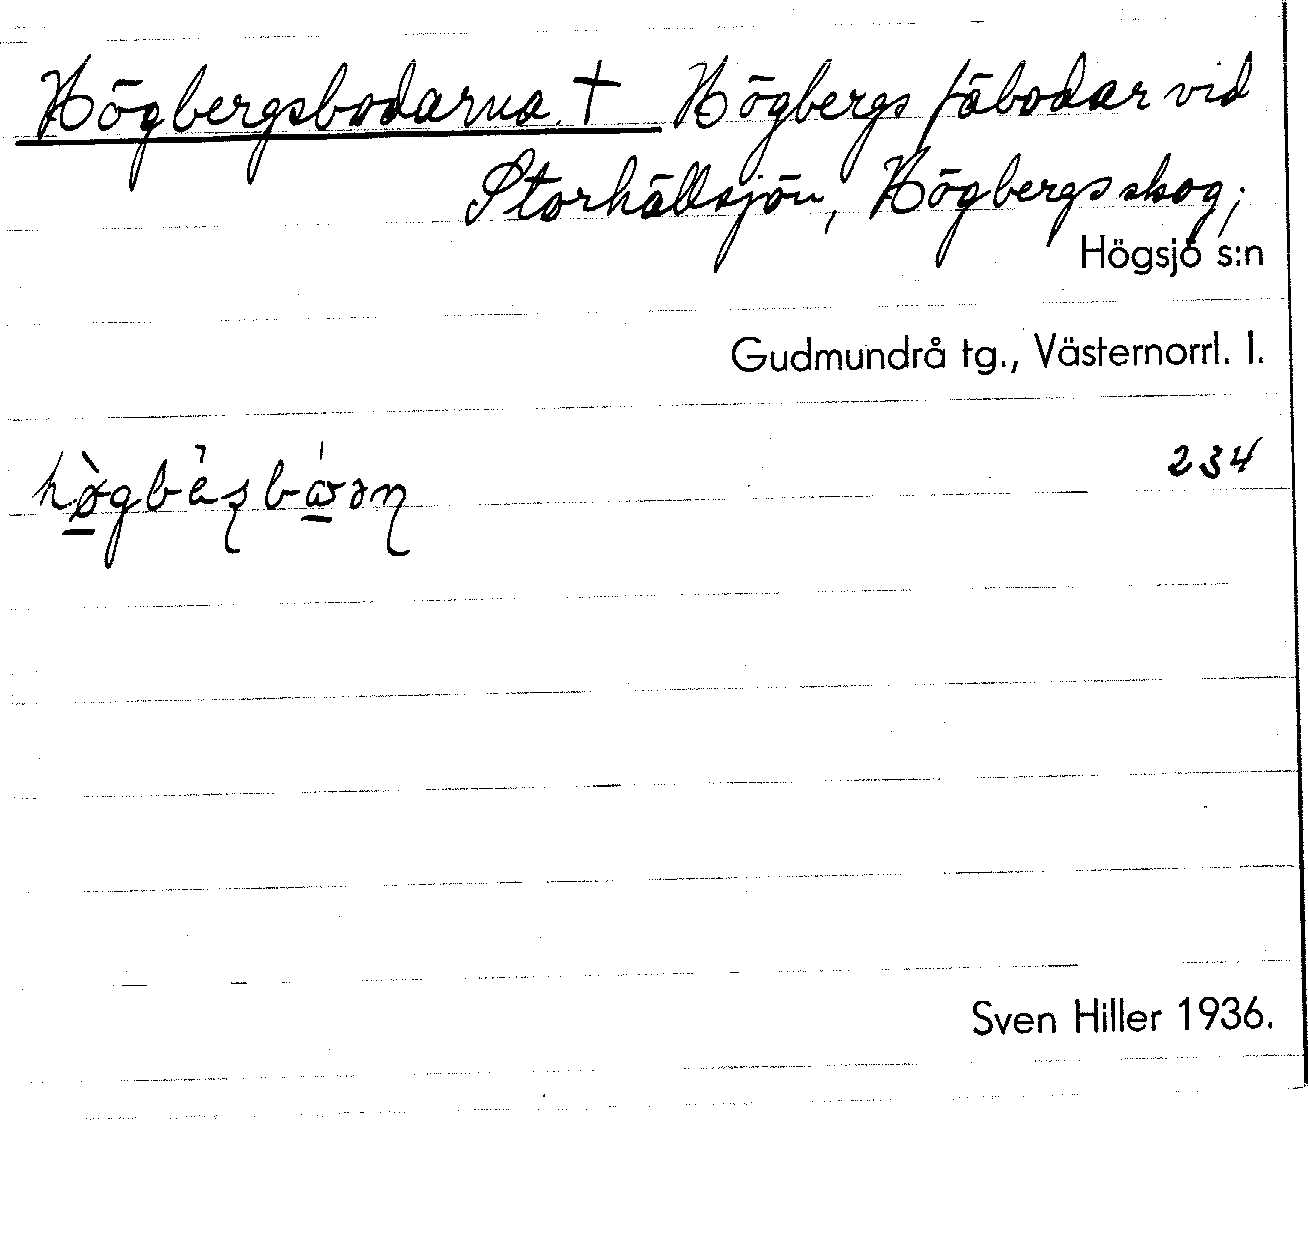 Högbergsbodarna. † Högbergs fäbodar vid
Storhällsjön, Högbergs skog;
Högsjö s:n
Gudmundrå tg., Västernorrl. l.
234
Sven Hiller 1936.